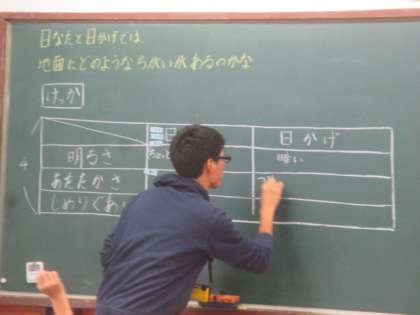 日なたと日かげでは
地面にどのようなちがいがあるのかな
けっか
日 日かげ
明るさ 暗い
あたたかさ つ
しめりぐあ